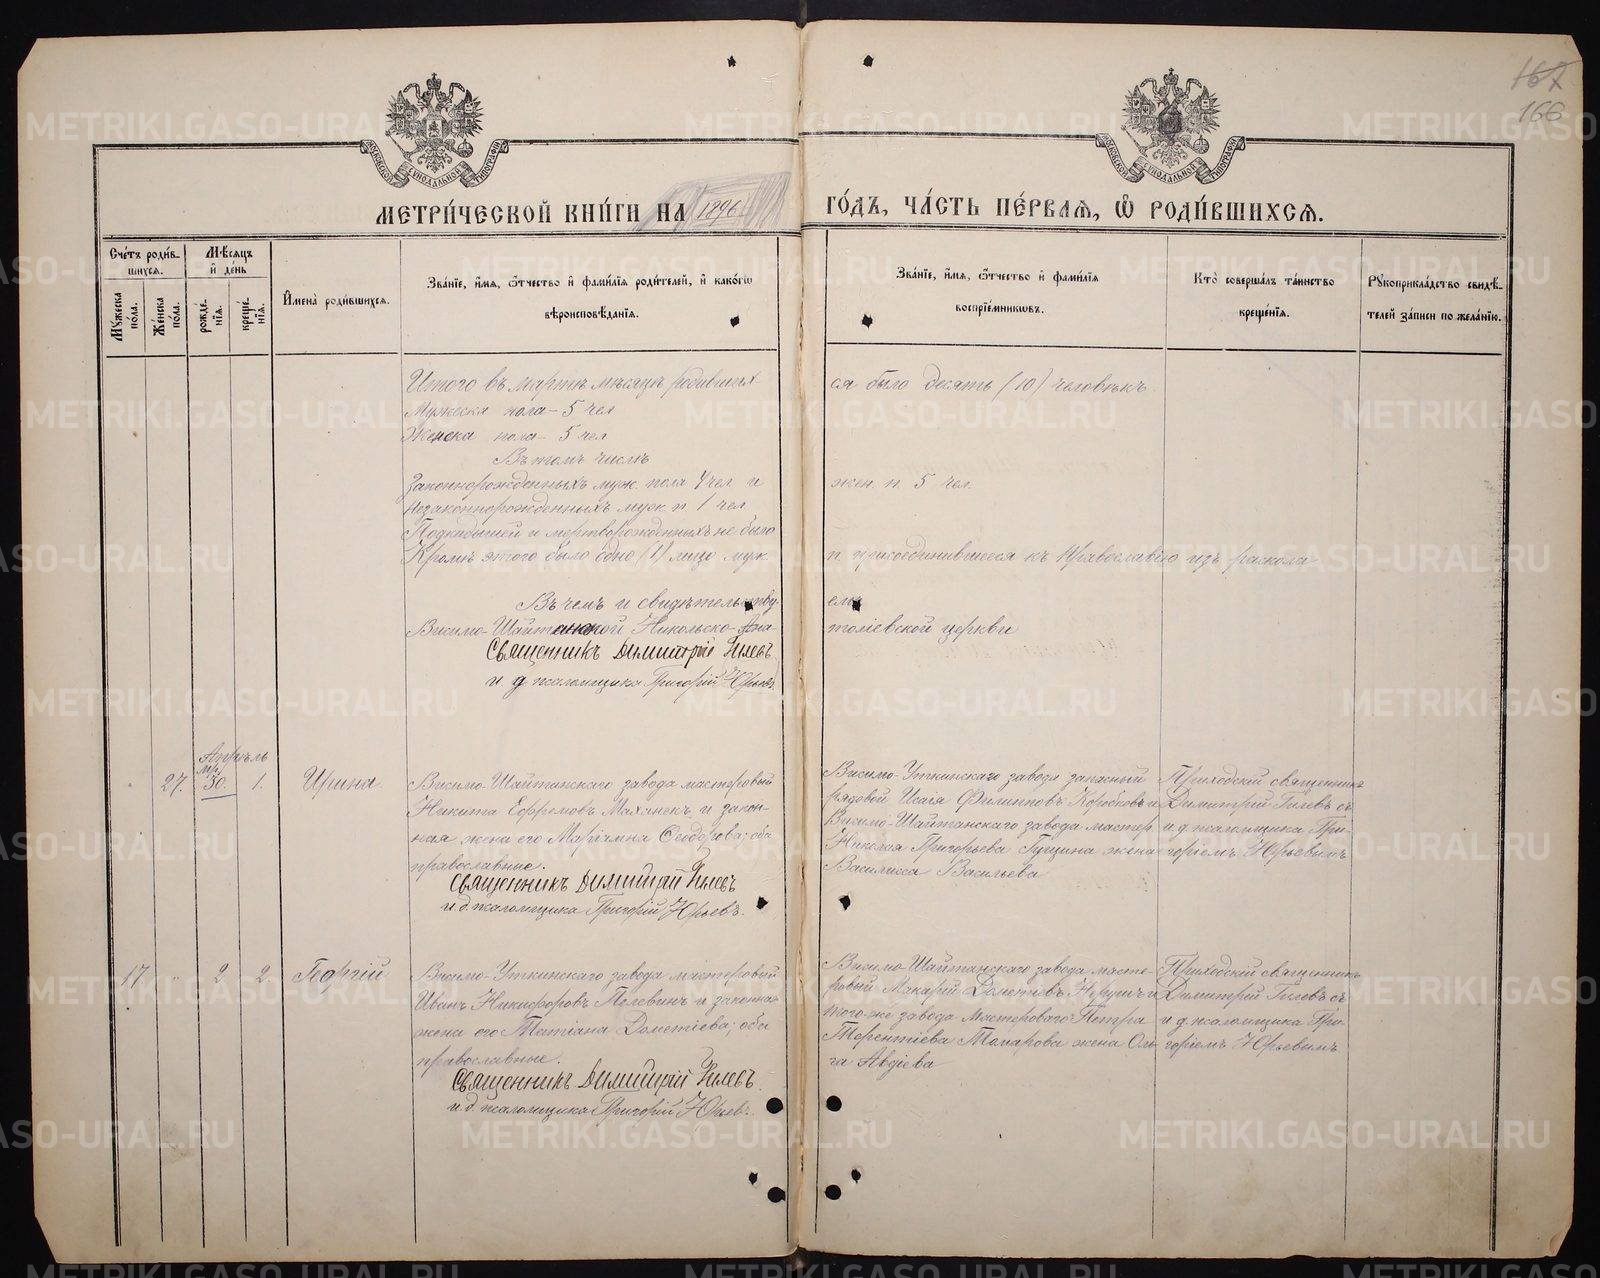 167
166
МОСКОВСКОЙ СѴНОДАЛЬНОЙ ТИПОГРАФІИ
МОСКОВСКОЙ СѴНОДАЛЬНОЙ ТИПОГРАФІИ
МЕТРИ́ЧЕСКОЙ КНИ́ГИ НА 1896 ГО́ДЪ, ЧА́СТЬ ПЕ́РВАѦ, Ѡ҆ РОДИ́ВШИХСѦ.
Сче́тъ роди́в-
шихсѧ.
Мѣ́сѧцъ
и҆ де́нь
Мꙋ́жеска по́ла.
Же́нска по́ла.
рожде́-
нїѧ.
креще́-
нїѧ.
И҆мена̀ роди́вшихсѧ.
Зва́нїе, и҆́мѧ, ѻ҆́тчество и҆ фами́лїѧ роди́телей, и҆ како́гѡ
вѣроисповѣ́данїѧ.
Зва́нїе, и҆́мѧ, ѻ҆́тчество и҆ фами́лїѧ
воспрїе́мникѡвъ.
Кто̀ соверша́лъ та́инство
креще́нїѧ.
Рꙋкоприкла́дство свидѣ́-
телей за́писи по жела́нїю.
Итого въ мартѣ мѣсяцѣ родивших- ся было десять (10) человѣкъ
Мужеска пола - 5 чел
Женска пола - 5 чел
Въ томъ числѣ
Законнорожденныхъ муж. пола 4 чел и жен. п. 5 чел.
Незаконнорожденныхъ муж п 1 чел
Подкидышей и мертворожденныхъ не было
Кромѣ этого было одно (1) лицо муж. п присоединившееся къ Православію изъ раскола
Въ чемъ и свидѣтельству- емъ
Висимо-Шайтанской Никольско-Ана- толіевской церкви
Священникъ Димитрій Гилевъ
и д псаломщика Григорій Юрьевъ
Апрѣль
27. Мр. 30. 1. Ирина
Висимо-Шайтанскаго завода мастеровый
Никита Ефремовъ Маханекъ и закон-
ная жена его Маріамна Ѳеодорова; оба
православные.
Священникъ Димитрій Гилевъ
и.д. псаломщика Григорій Юрьевъ.
Висимо-Уткинскаго завода запасный
рядовой Исаія Филипповъ Коробковъ и
Висимо-Шайтанскаго завода мастер.
Николая Григорьева Гущина жена
Василисса Васильева
Приходскій священникъ
Димитрій Гилевъ съ
и.д. псаломщика Гри-
горіемъ Юрьевымъ
17 " 2 2 Георгій
Висимо-Уткинскаго завода мастеровый
Иванъ Никифоровъ Пелевинъ и законная
жена его Татіана Дометіева; оба
православные.
Священникъ Димитрій Гилевъ.
и.д. псаломщика Григорій Юрьевъ.
Висимо-Шайтанскаго завода масте-
ровый Макарій Дометіевъ и
того-же завода мастероваго Петра
Терентіева Токарова жена Оль-
га Авдіева
Приходскій священникъ
Димитрій Гилевъ съ
и д. псаломщика Гри-
горіемъ Юрьевымъ
METRIKI.GASO-URAL.RU